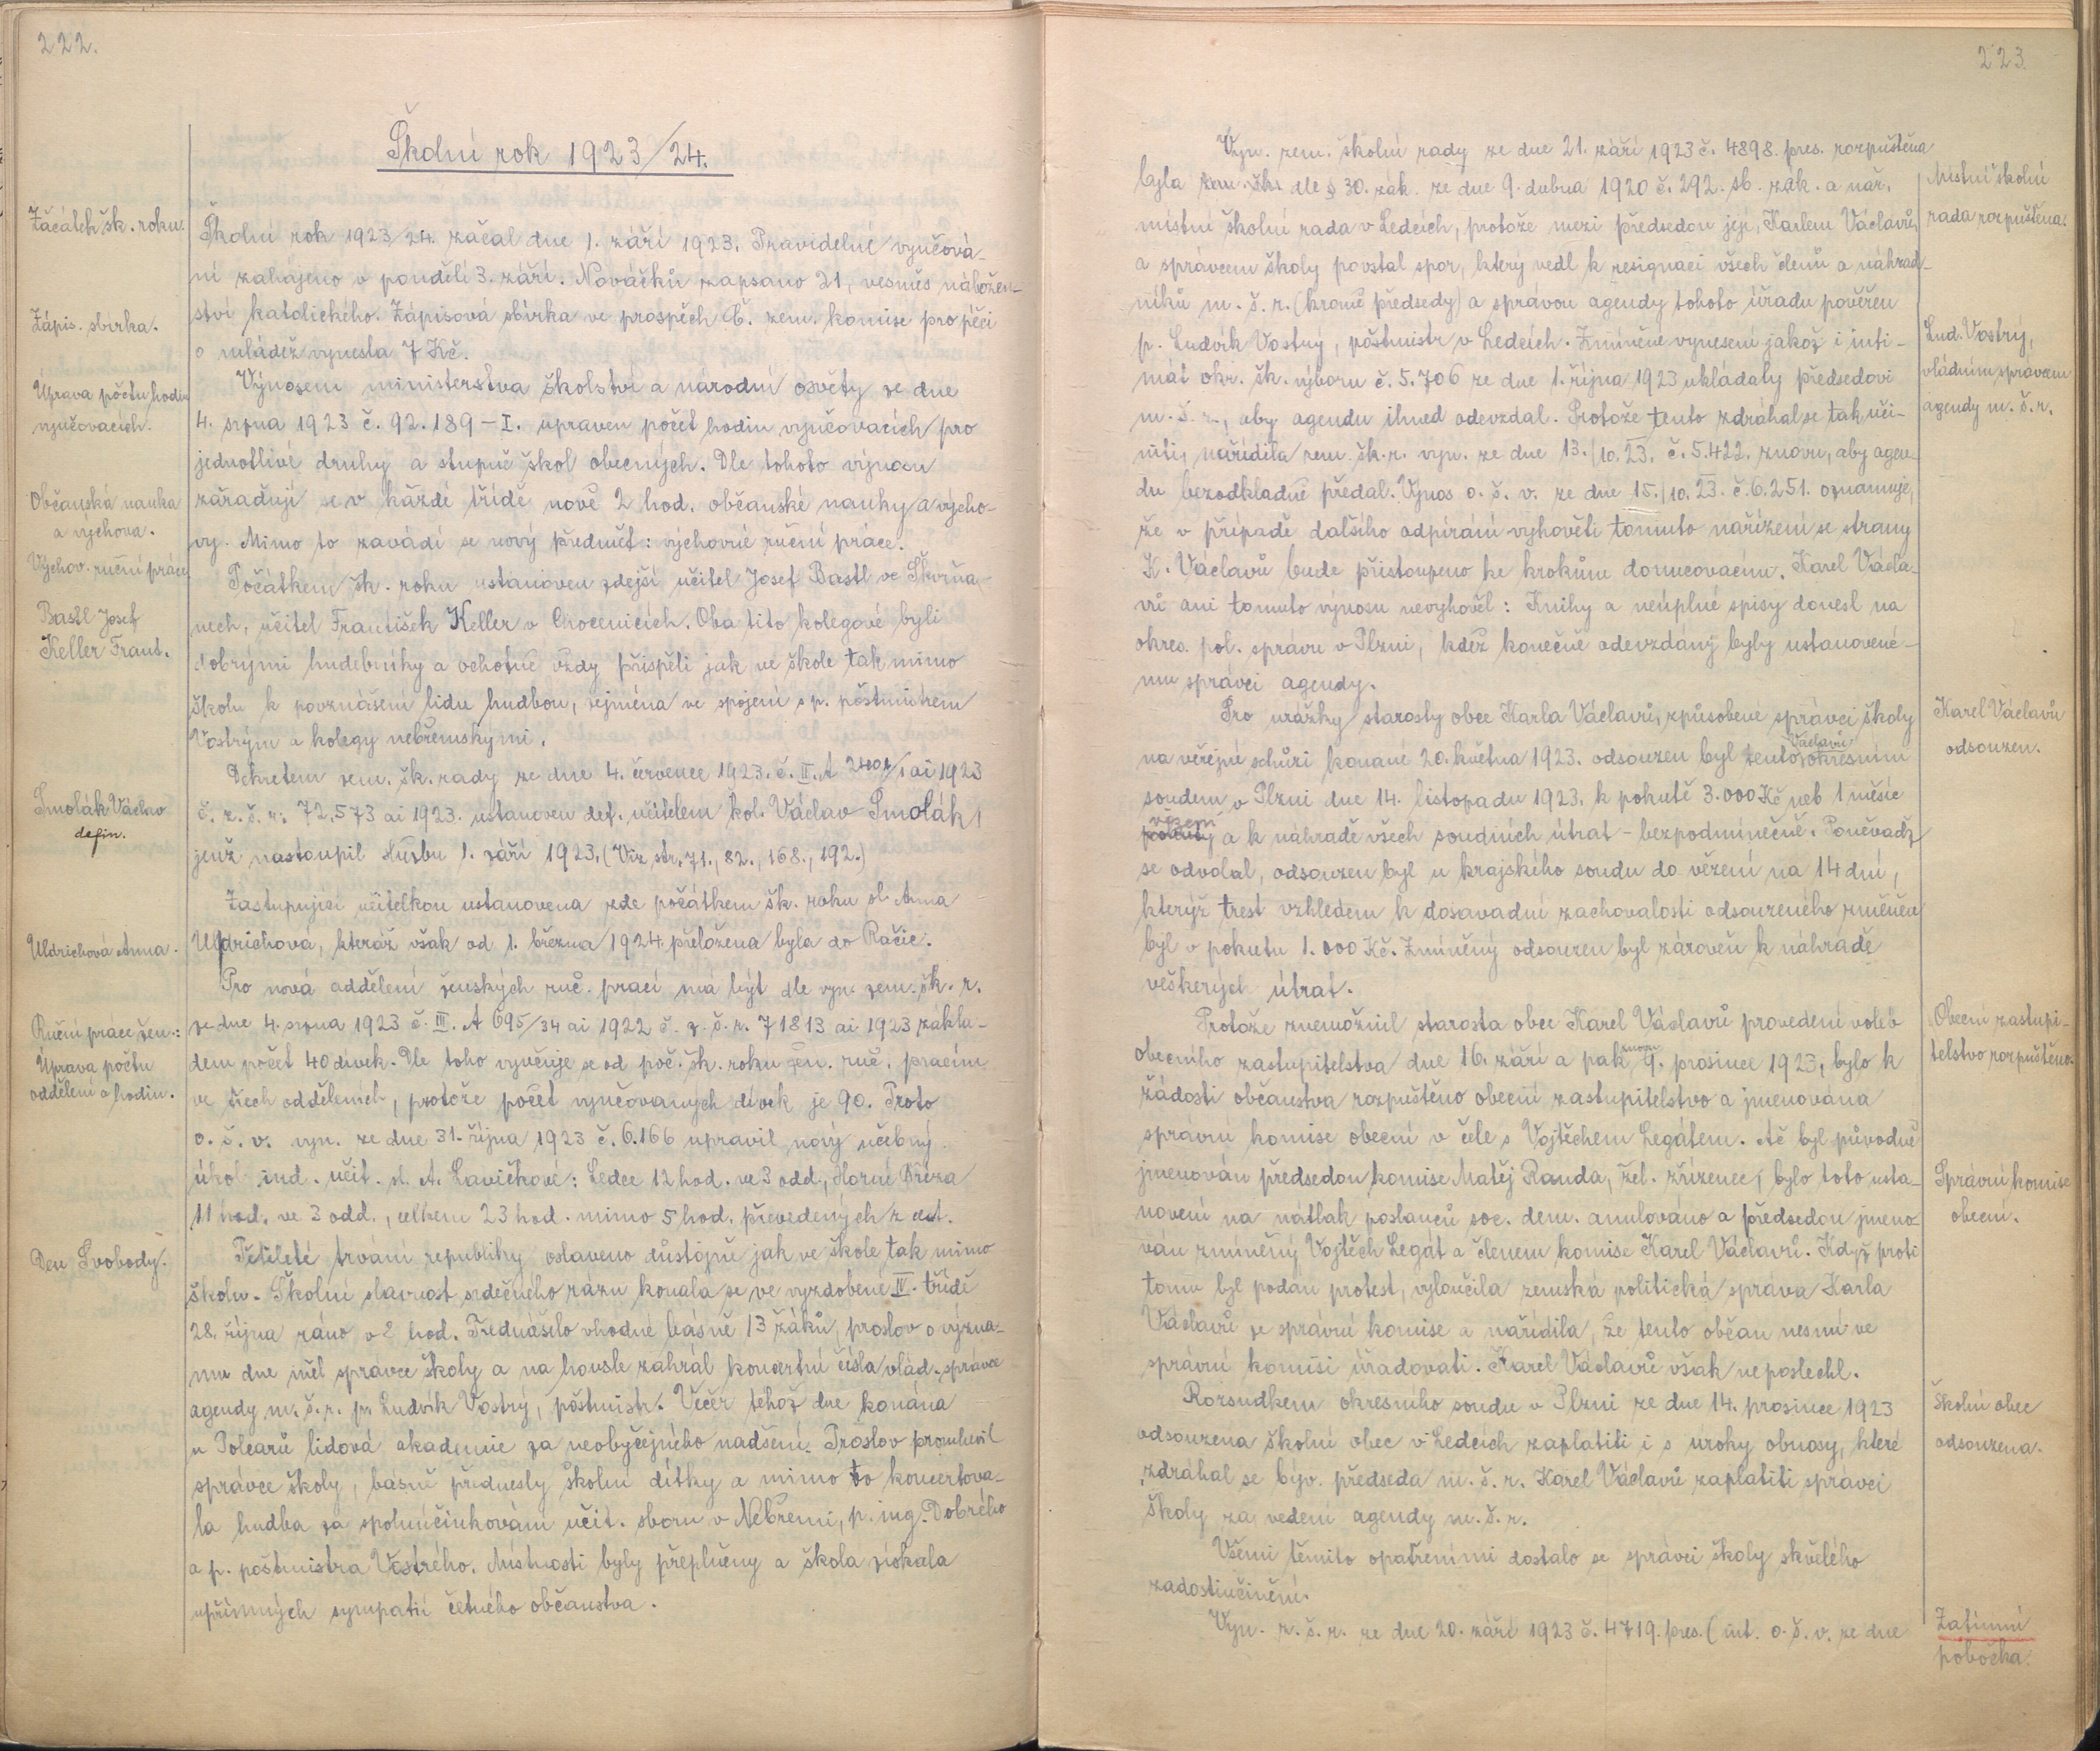 222.
Školní rok 1923/24.
Začátek šk. roku.
Školní rok 1923/24. začal dne 1. září 1923. Pravidelné vyučová-
ní zahájeno v pondělí 3. září. Nováčků zapsáno 21, vesměs nábožen-
ství katolického. Zápisová sbírka ve prospěch Č. zem. komise pro péči
o mládež vynesla 7 Kč.
Zápis. sbírka.
Výnosem ministerstva školství a národní osvěty ze dne
4. srpna 1923 č. 92.189-I. upraven počet hodin vyučovacích pro
jednotlivé druhy a stupně škol obecných. Dle tohoto výnosu
zařaďují se v každé třídě nově 2 hod. občanské nauky a výcho-
vy. Mimo to zavádí se nový předmět: výchovné ruční práce.
Úprava počtu hodin
vyučovacích.
Občanská nauka
a výchova.
Výchov. ruční práce
Počátkem šk. roku ustanoven zdejší učitel Josef Bastl ve Skvrňa-
nech, učitel František Keller v Chocenicích. Oba tito kolegové byli
dobrými hudebníky a ochotně vždy přispěli jak ve škole tak mimo
školu k povznášení lidu hudbou, zejména ve spojení s p. poštmistrem
Vostrým a kolegy nebřemskými.
Bastl Josef
Keller Frant.
Dekretem zem. šk. rady ze dne 4. července 1923. č. II. A 2401/1 ai 1923
č. z. š. r. 72.573 ai 1923. ustanoven def. učitelem kol. Václav Smolák,
jenž nastoupil službu 1. září 1923. (Viz str. 71., 82., 168., 192.)
Smolák Václav
defin.
Zastupující učitelkou ustanovena zde počátkem šk. roku sl. Anna
Uldrichová, kteráž však od 1. března 1924 přeložena byla do Račic.
Uldrichová Anna.
Pro nová oddělení ženských ruč. prací má býti dle vyn. zem. šk. r.
ze dne 4. srpna 1923 č. III. A 695/34 ai 1922 č. z. š. r. 71813 ai 1923 zákla-
dem počet 40 dívek. Dle toho vyučuje se od poč. šk. roku žen. ruč. pracím
ve třech odděleních, protože počet vyučovaných dívek je 90. Proto
o. š. v. vyn. ze dne 31. října 1923 č. 6.166 upravil nový učebný
úkol ind. učit. sl. A. Lavičkové: Ledce 12 hod. ve 3 odd., Horní Bříza
11 hod. ve 3 odd., celkem 23 hod. mimo 5 hod. převedených z cest.
Ruční práce žen.:
Úprava počtu
oddělení a hodin.
Pětileté trvání republiky oslaveno důstojně jak ve škole tak mimo
školu. Školní slavnost srdečného rázu konala se ve vyzdobené IV. třídě
28. října ráno v 2 hod. Předneslo vhodné básně 13 žáků, proslov o význa-
mu dne měl správce školy a na housle zahrál koncertní čísla vlád. správce
agendy m. š. r. p. Ludvík Vostrý, poštmistr. Večer téhož dne konána
u Polcarů lidová akademie za neobyčejného nadšení. Proslov promluvil
správce školy, básně přednesly školní dítky a mimo to koncertova-
la hudba za spoluúčinkování učit. sboru v Nebřemi, p. ing. Dobrého
a p. poštmistra Vostrého. Místnosti byly přeplněny a škola získala
upřímných sympatií četného občanstva.
Den Svobody.
223.
Vyn. zem. školní rady ze dne 21. září 1923 č. 4898. pres. rozpuštěna
byla zem. šk. dle § 30. zák. ze dne 9. dubna 1920 č. 292. sb. zák. a nař.
místní školní rada v Ledcích, protože mezi předsedou její, Karlem Václavů,
a správcem školy povstal spor, který vedl k resignaci všech členů a náhrad-
níků m. š. r. (kromě předsedy) a správou agendy tohoto úřadu pověřen
p. Ludvík Vostrý, poštmistr v Ledcích. Zmíněné vynesení jakož i inti-
mát okr. šk. výboru č. 5.706 ze dne 1. října 1923 ukládaly předsedovi
m. š. r., aby agendu ihned odevzdal. Protože tento zdráhal se tak uči-
niti, nařídila zem. šk. r. vyn. ze dne 13./10. 23. č. 5.422. znovu, aby agen-
du bezodkladně předal. Výnos o. š. v. ze dne 15./10. 23. č. 6.251. oznamuje,
že v případě dalšího odpírání vyhověti tomuto nařízení se strany
K. Václavů bude přistoupeno ke krokům donucovacím. Karel Václa-
vů ani tomuto výnosu nevyhověl: Knihy a neúplné spisy donesl na
okres. pol. správu v Plzni, kdež konečně odevzdány byly ustanovené-
mu správci agendy.
Místní školní
rada rozpuštěna.
Lud. Vostrý,
vládním správcem
agendy m. š. r.
Pro urážky starosty obce Karla Václavů, způsobené správci školy
na veřejné schůzi konané 20. května 1923. odsouzen byl tento Václavů okresním
soudem v Plzni dne 14. listopadu 1923. k pokutě 3.000 Kč neb 1 měsíc
vězení a k náhradě všech soudních útrat - bezpodmínečně. Poněvadž
se odvolal, odsouzen byl u krajského soudu do vězení na 14 dní,
kterýž trest vzhledem k dosavadní zachovalosti odsouzeného změněn
byl v pokutu 1.000 Kč. Zmíněný odsouzen byl zároveň k náhradě
veškerých útrat.
Karel Václavů
odsouzen.
Protože znemožnil starosta obce Karel Václavů provedení voleb
obecního zastupitelstva dne 16. září a pak znovu 9. prosince 1923, bylo k
žádosti občanstva rozpuštěno obecní zastupitelstvo a jmenována
správní komise obecní v čele s Vojtěchem Legátem. Ač byl původně
jmenován předsedou komise Matěj Randa, žel. zřízenec, bylo toto usta-
novení na nátlak poslanců soc. dem. anulováno a předsedou jmeno-
ván zmíněný Vojtěch Legát a členem komise Karel Václavů. Když proti
tomu byl podán protest, vyloučila zemská politická správa Karla
Václavů ze správní komise a nařídila, že tento občan nesmí ve
správní komisi úřadovati. Karel Václavů však neposlechl.
Obecní zastupi-
telstvo rozpuštěno.
Správní komise
obecní.
Rozsudkem okresního soudu v Plzni ze dne 14. prosince 1923
odsouzena školní obec v Ledcích zaplatiti i s úroky obnosy, které
zdráhal se býv. předseda m. š. r. Karel Václavů zaplatiti správci
školy za vedení agendy m. š. r.
Školní obec
odsouzena.
Všemi těmito opatřeními dostalo se správci školy skvělého
zadostiučinění.
Vyn. z. š. r. ze dne 20. září 1923 č. 4719. pres. (int. o. š. v. ze dne
Zatímní
pobočka.